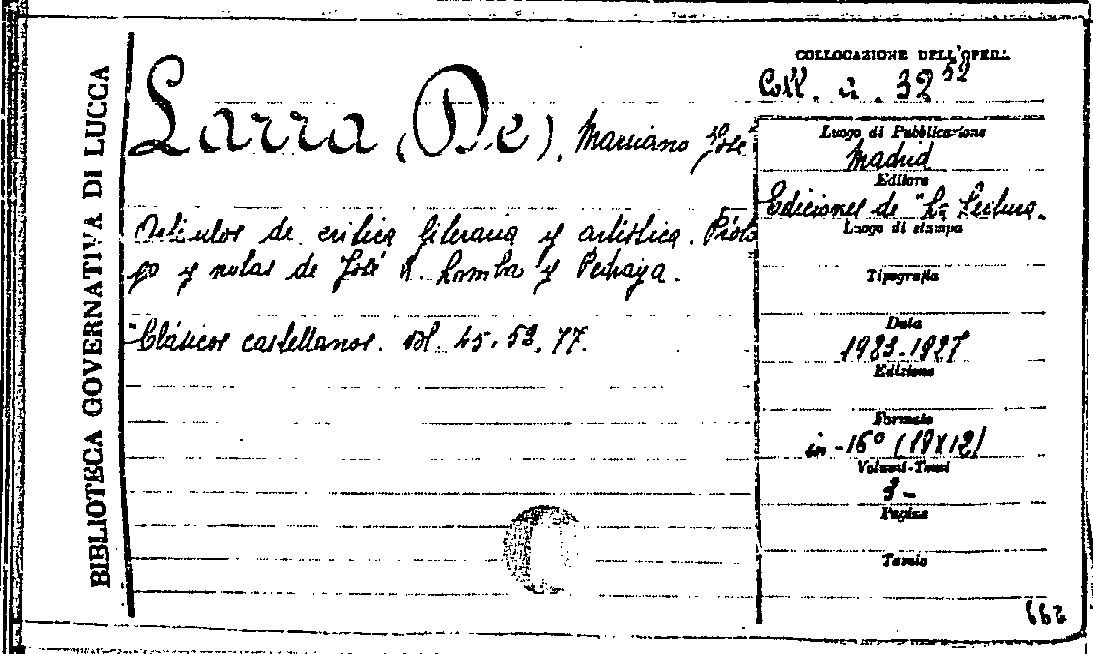 BIBLIOTECA GOVERNATIVA DI LUCCA
COLLOCAZIONE DELL'OPERA
Coll. a. 32 52
Larra (De), Mariano José
Luogo di Pubblicazione
Madrid
Editore
Ediciones de "La Lectura.
Articulos de critica literaria y artistica. Prólo
Luogo di stampa
go y notas de José R. Lomba y Pedraja.
Tipografia
"Clásicos castellanos. Vol. 45. 52. 77.
Data
1923-1927
Edizione
Formato
in-16° (19X12)
Volumi-Tomi
3-
Pagine
Tavole
662